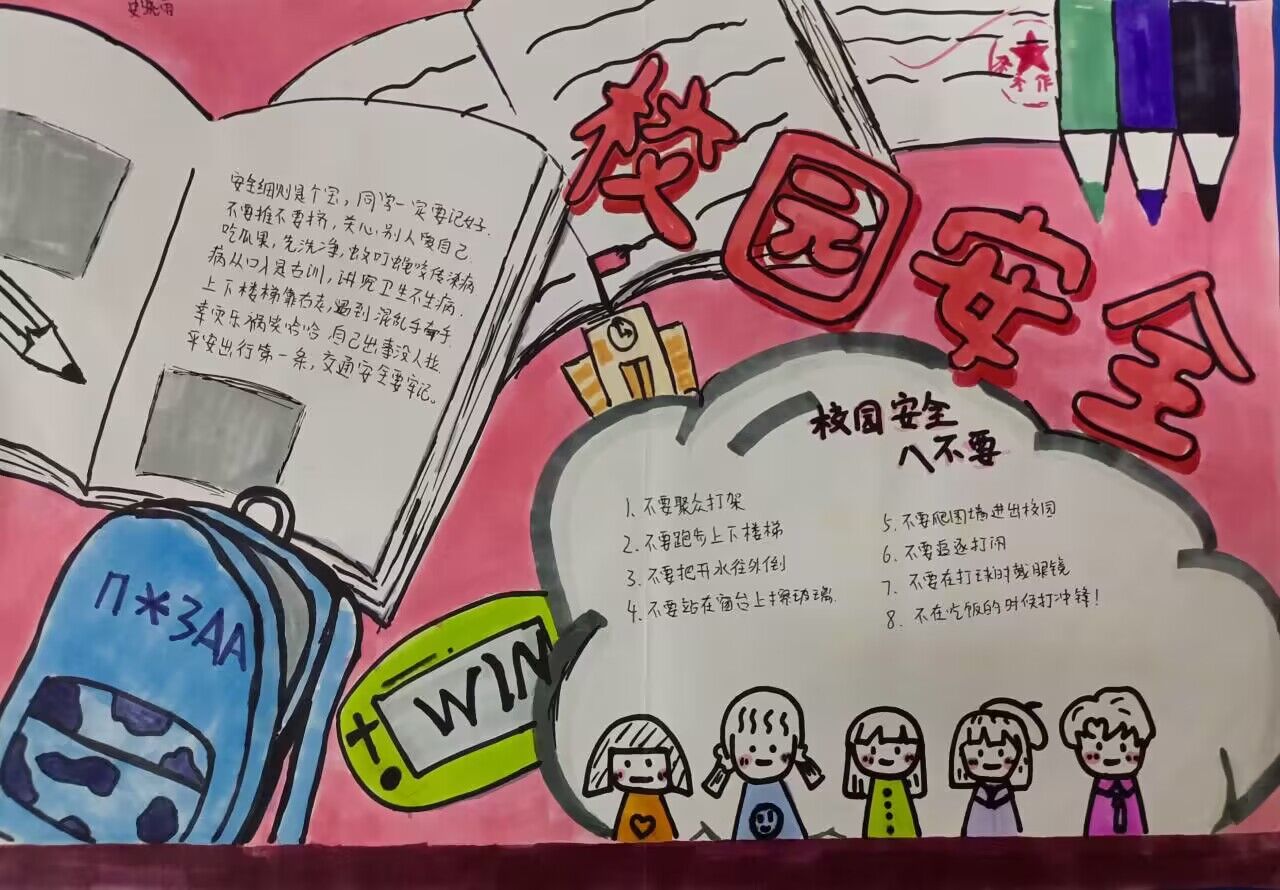 校园安全
安全细则是个宝，同学一定要记好.
不要推不要挤，关心别人要自己.
吃瓜果，先洗净，蚊叮蝇咬传染病
病从口入是古训，讲究卫生不生病.
上下楼梯靠右走，遇到混乱手牵手.
幸灾乐祸笑哈哈，自己出事没人拉
平安出行第一条，交通安全要牢记。
校园安全
八不要
1. 不要聚众打架
2. 不要跑步上下楼梯
3. 不要把开水往外倒
4. 不要站在窗台上擦玻璃.
5. 不要爬围墙进出校园
6. 不要追逐打闹
7. 不要在打球时戴眼镜
8. 不在吃饭的时候打冲锋！
П*ЗДА
WIN